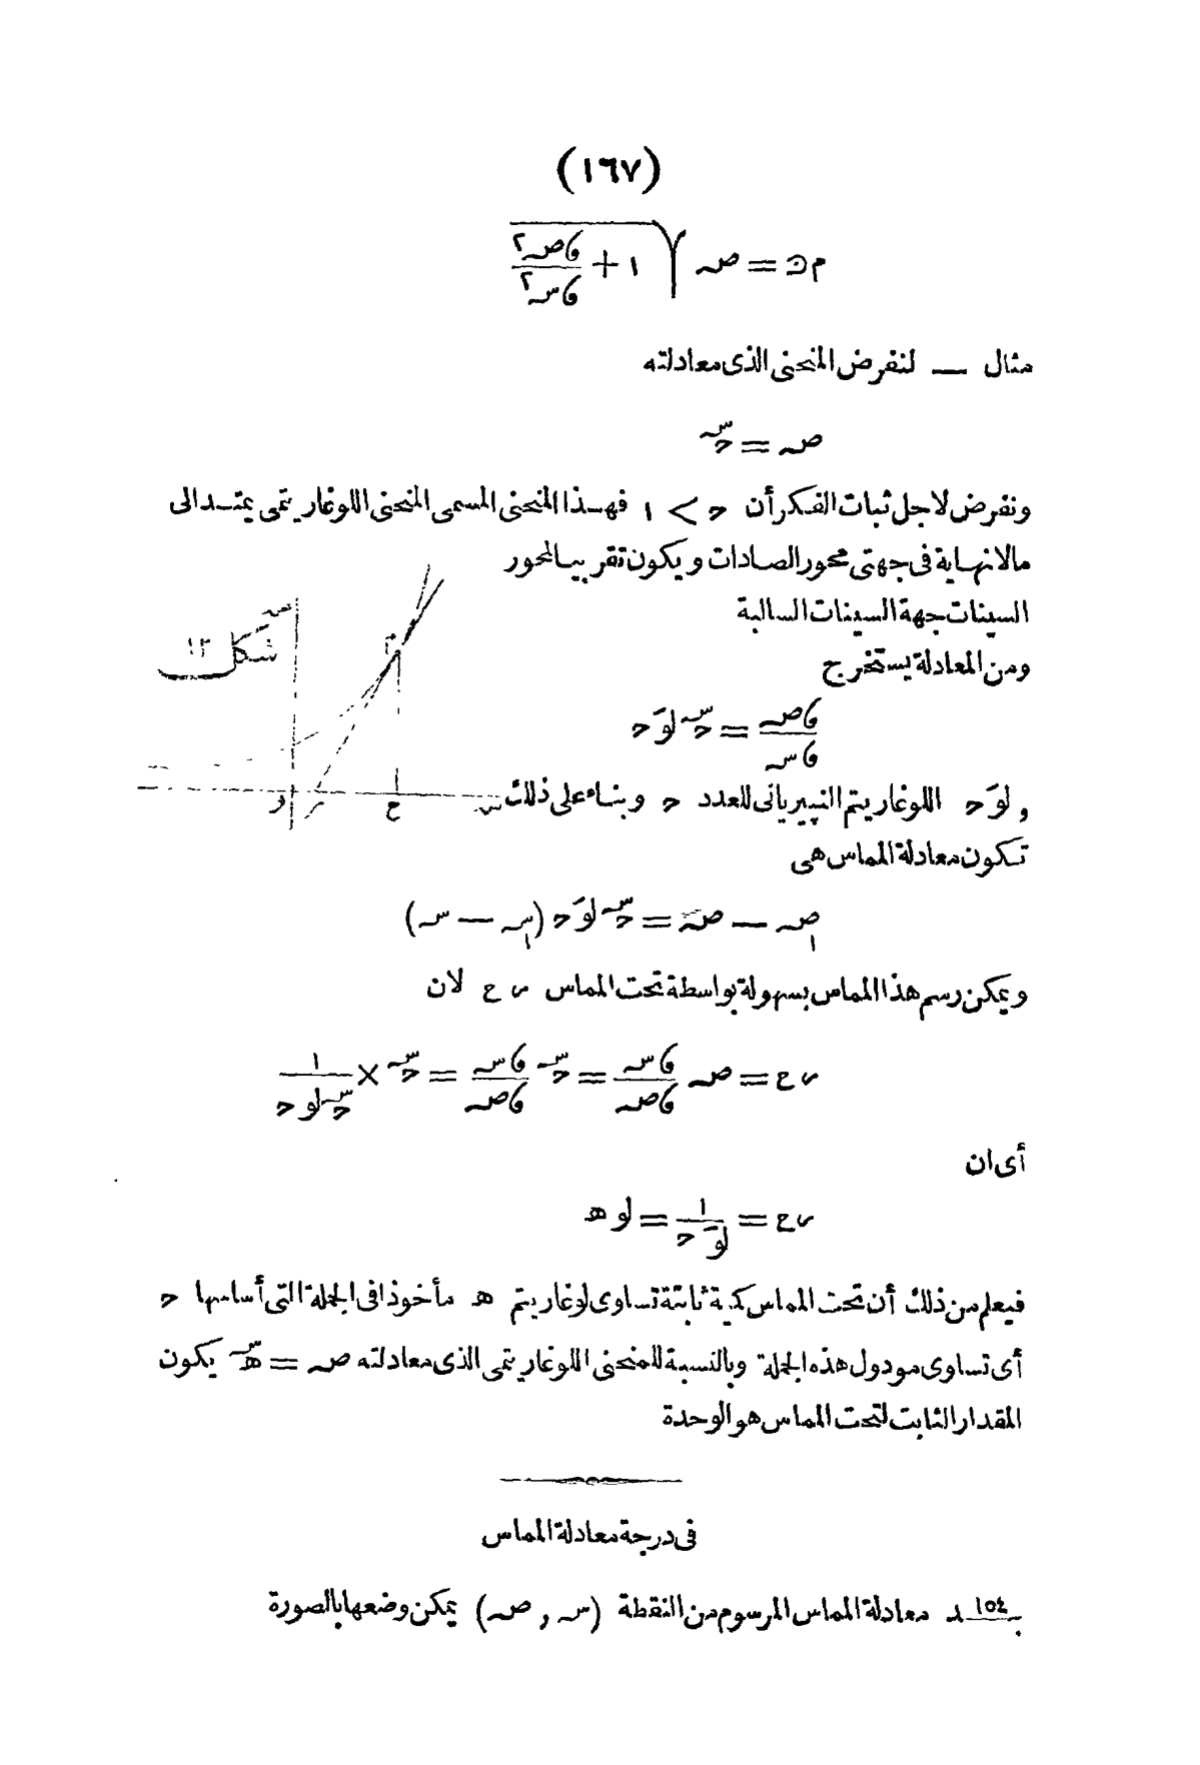 (١٦٧)
م ن = صہ √(١ + ڡاصہ٢/ڡاسہ٢)
مثال — لنفرض المنحنى الذى معادلته
صہ = حـ^سہ
ونفرض لاجل ثبات الفكر أن حـ > ١ فهذا المنحنى المسمى المنحنى اللوغاريتمى يمتد الى
مالانهاية فى جهتى محور الصادات ويكون تقريبا لمحور
السينات جهة السينات السالبة
شكل ١٣
صہ
م
و
مہ
ع
سہ
ومن المعادلة يستخرج
ڡاصہ/ڡاسہ = حـ^سہ لوَ حـ
و لوَ حـ اللوغاريتم النيبيريانى للعدد حـ وبناء على ذلك
تكون معادلة المماس هى
صہ١ — صہ = حـ^سہ لوَ حـ (سہ١ — سہ)
ويمكن رسم هذا المماس بسهولة بواسطة تحت المماس مہ ع لان
مہ ع = صہ ڡاسہ/ڡاصہ = حـ^سہ ڡاسہ/ڡاصہ = حـ^سہ × ١/(حـ^سہ لو حـ)
أى ان
مہ ع = ١/(لوَ حـ) = لو هـ
فيعلم من ذلك أن تحت المماس كمية ثابتة تساوى لوغاريتم هـ مأخوذا فى الجملة التى أساسها حـ
أى تساوى مودول هذه الجملة وبالنسبة للمنحنى اللوغاريتمى الذى معادلته صہ = هـ^سہ يكون
المقدار الثابت لتحت المماس هو الوحدة
فى درجة معادلة المماس
بـ ١٥٤ ـد معادلة المماس المرسوم من النقطة (سہ , صہ) يمكن وضعها بالصورة